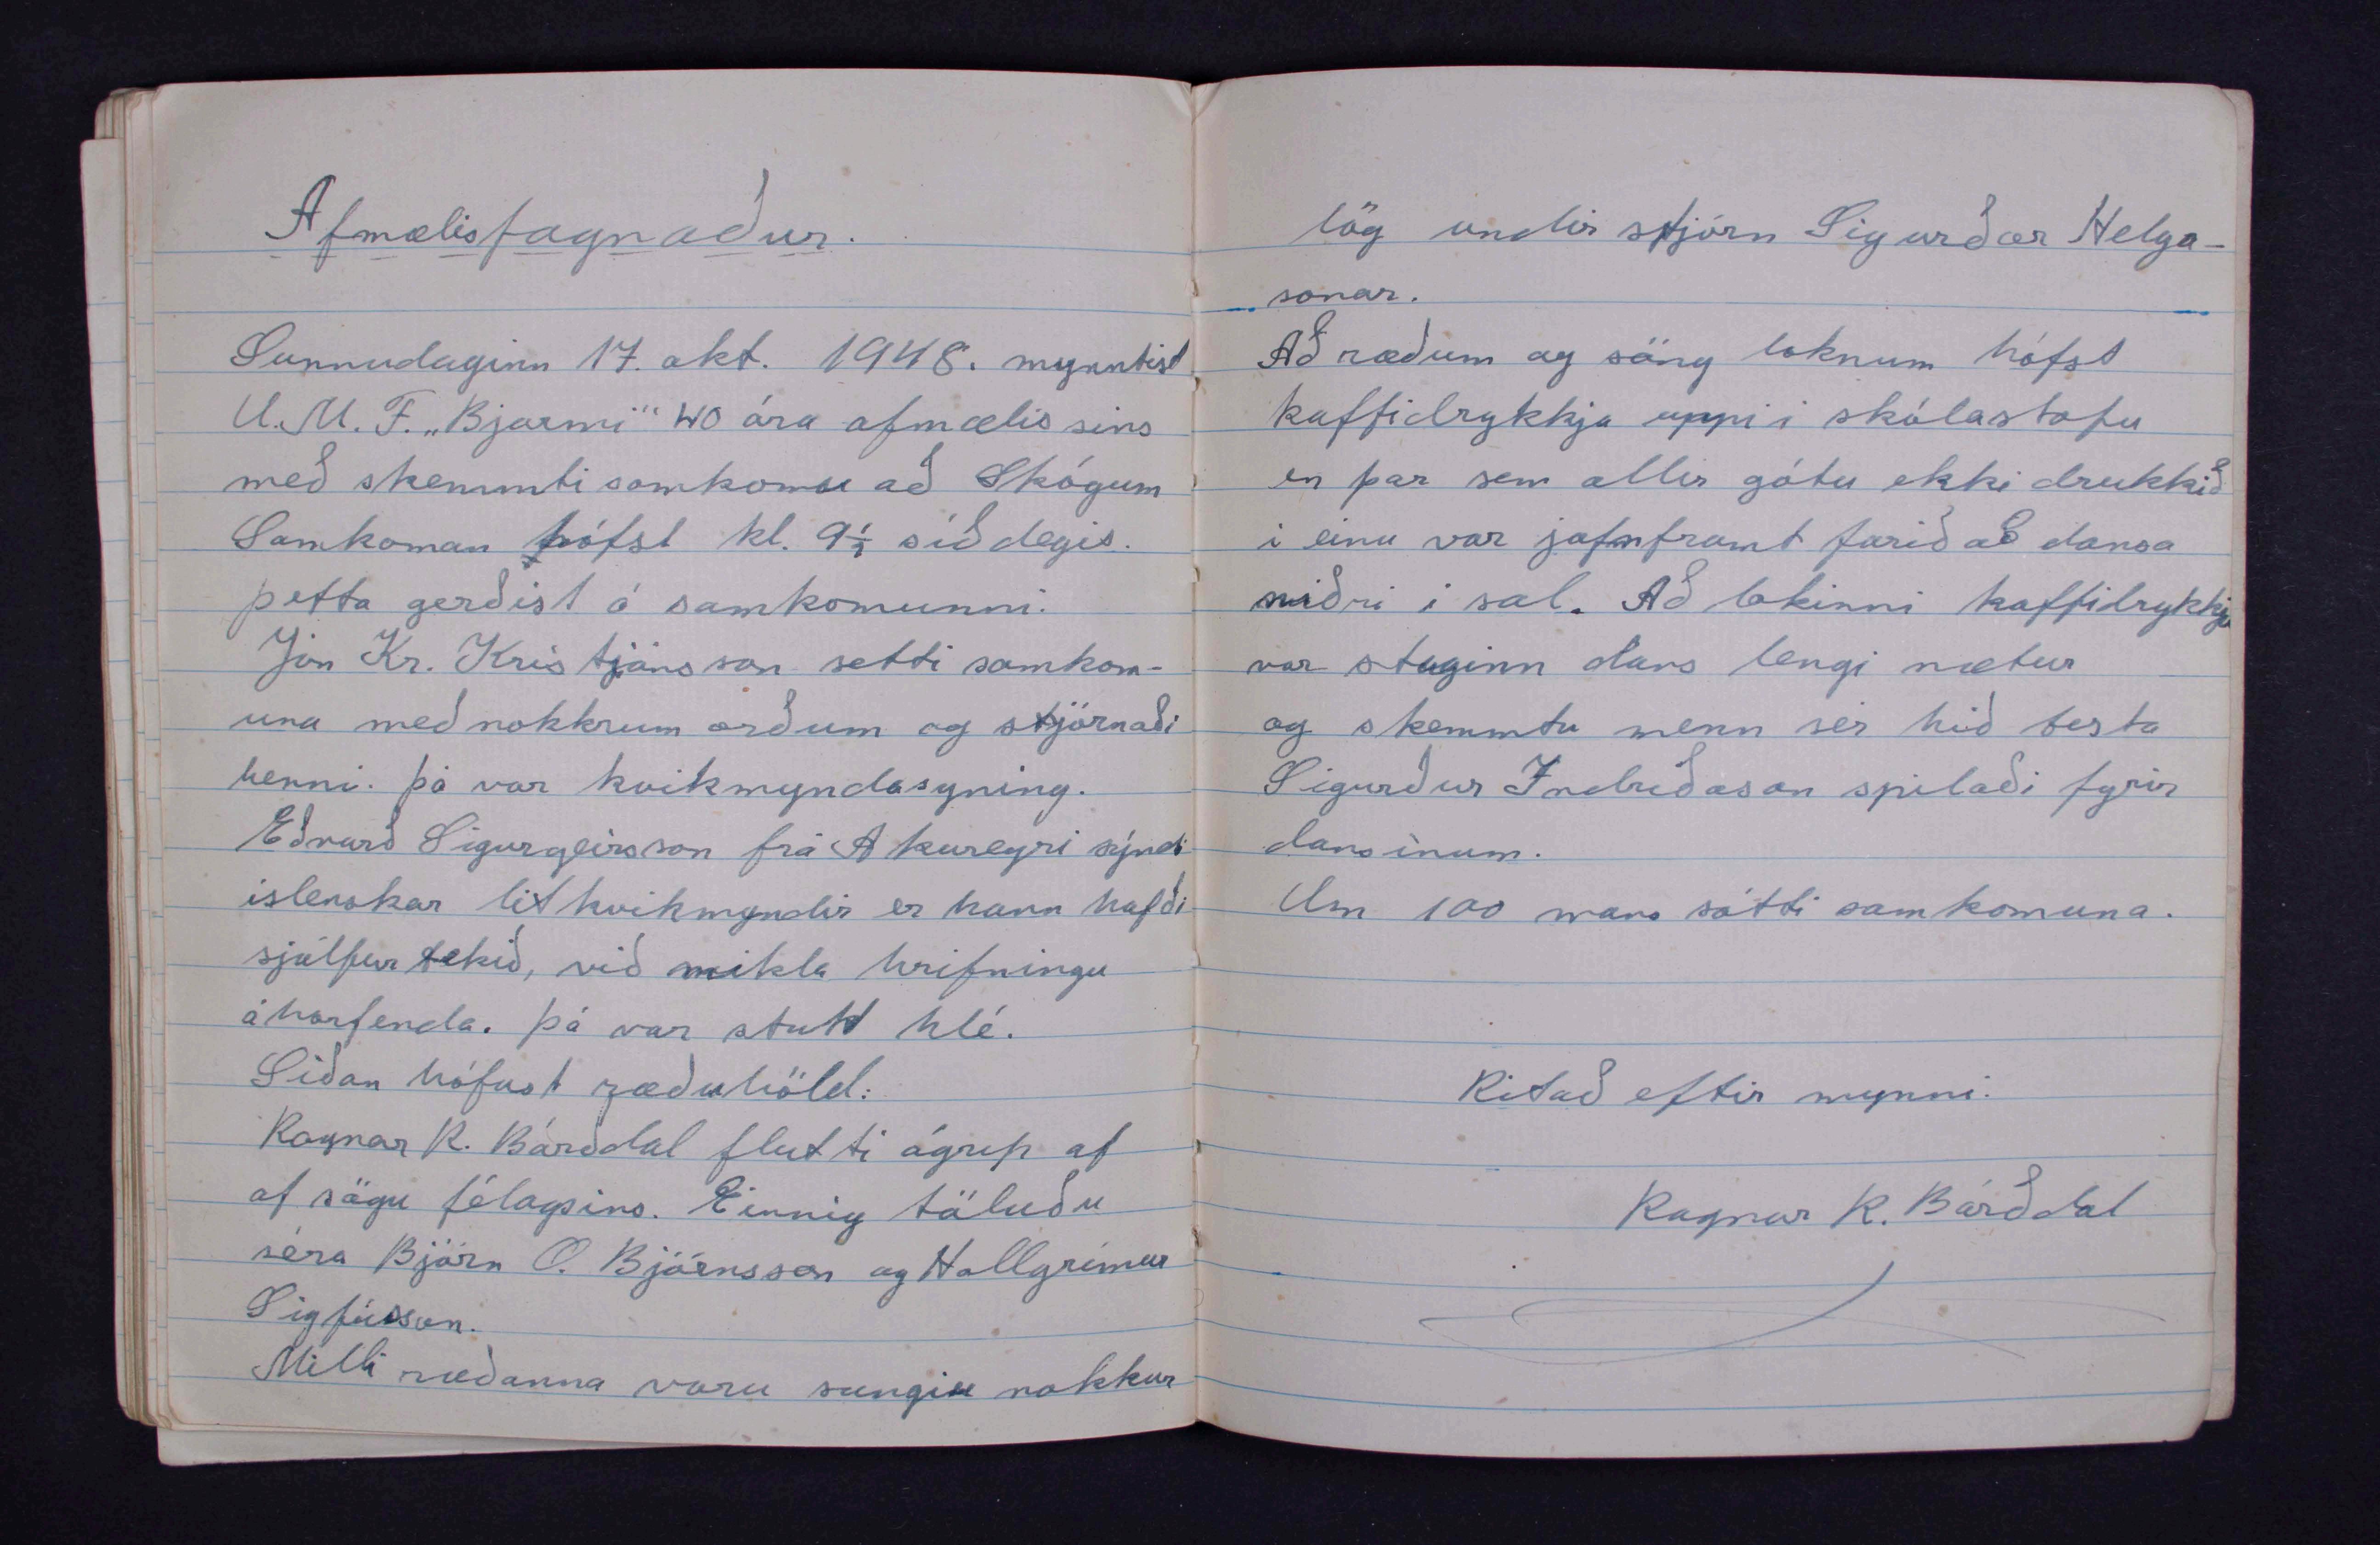 Afmælisfagnaður.
Sunnudaginn 17. okt. 1948. myntist
U.M.F. „Bjarmi" 40 ára afmælis sins
með skemmtisamkomu að Skógum
Samkoman hófst kl. 9½ síðdegis.
þetta gerðist á samkomunni.
Jón Kr. Kristjánsson setti samkom-
una með nokkrum orðum og stjórnaði
henni. þá var kvikmyndasyning.
Eðvarð Sigurgeirsson frá Akureyri sýndi
islenskar litkvikmyndir er hann hafði
sjálfur tekið, við mikla hrifningu
áhorfenda. þá var stutt hlé.
Siðan hófust ræðuhöld:
Ragnar R. Bárðdal flutti ágrip af
af sögu félagsins. Einnig töluðu
séra Björn O. Björnsson og Hallgrímur
Sigfússon.
Milli ræðanna voru sungin nokkur
lög undir stjórn Sigurðar Helga-
sonar.
Að ræðum og söng loknum hófst
kaffidrykkja uppi i skólastofu
en þar sem allir gótu ekki drukkið
i einu var jafnframt farið að dansa
niðri i sal. Að lokinni kaffidrykkju
var stiginn dans lengi nætur
og skemmtu menn sér hið besta
Sigurður Indriðason spilaði fyrir
dansinum.
Um 100 mans sótti samkomuna.
Ritað eftir mynni.
Ragnar R. Bárðdal